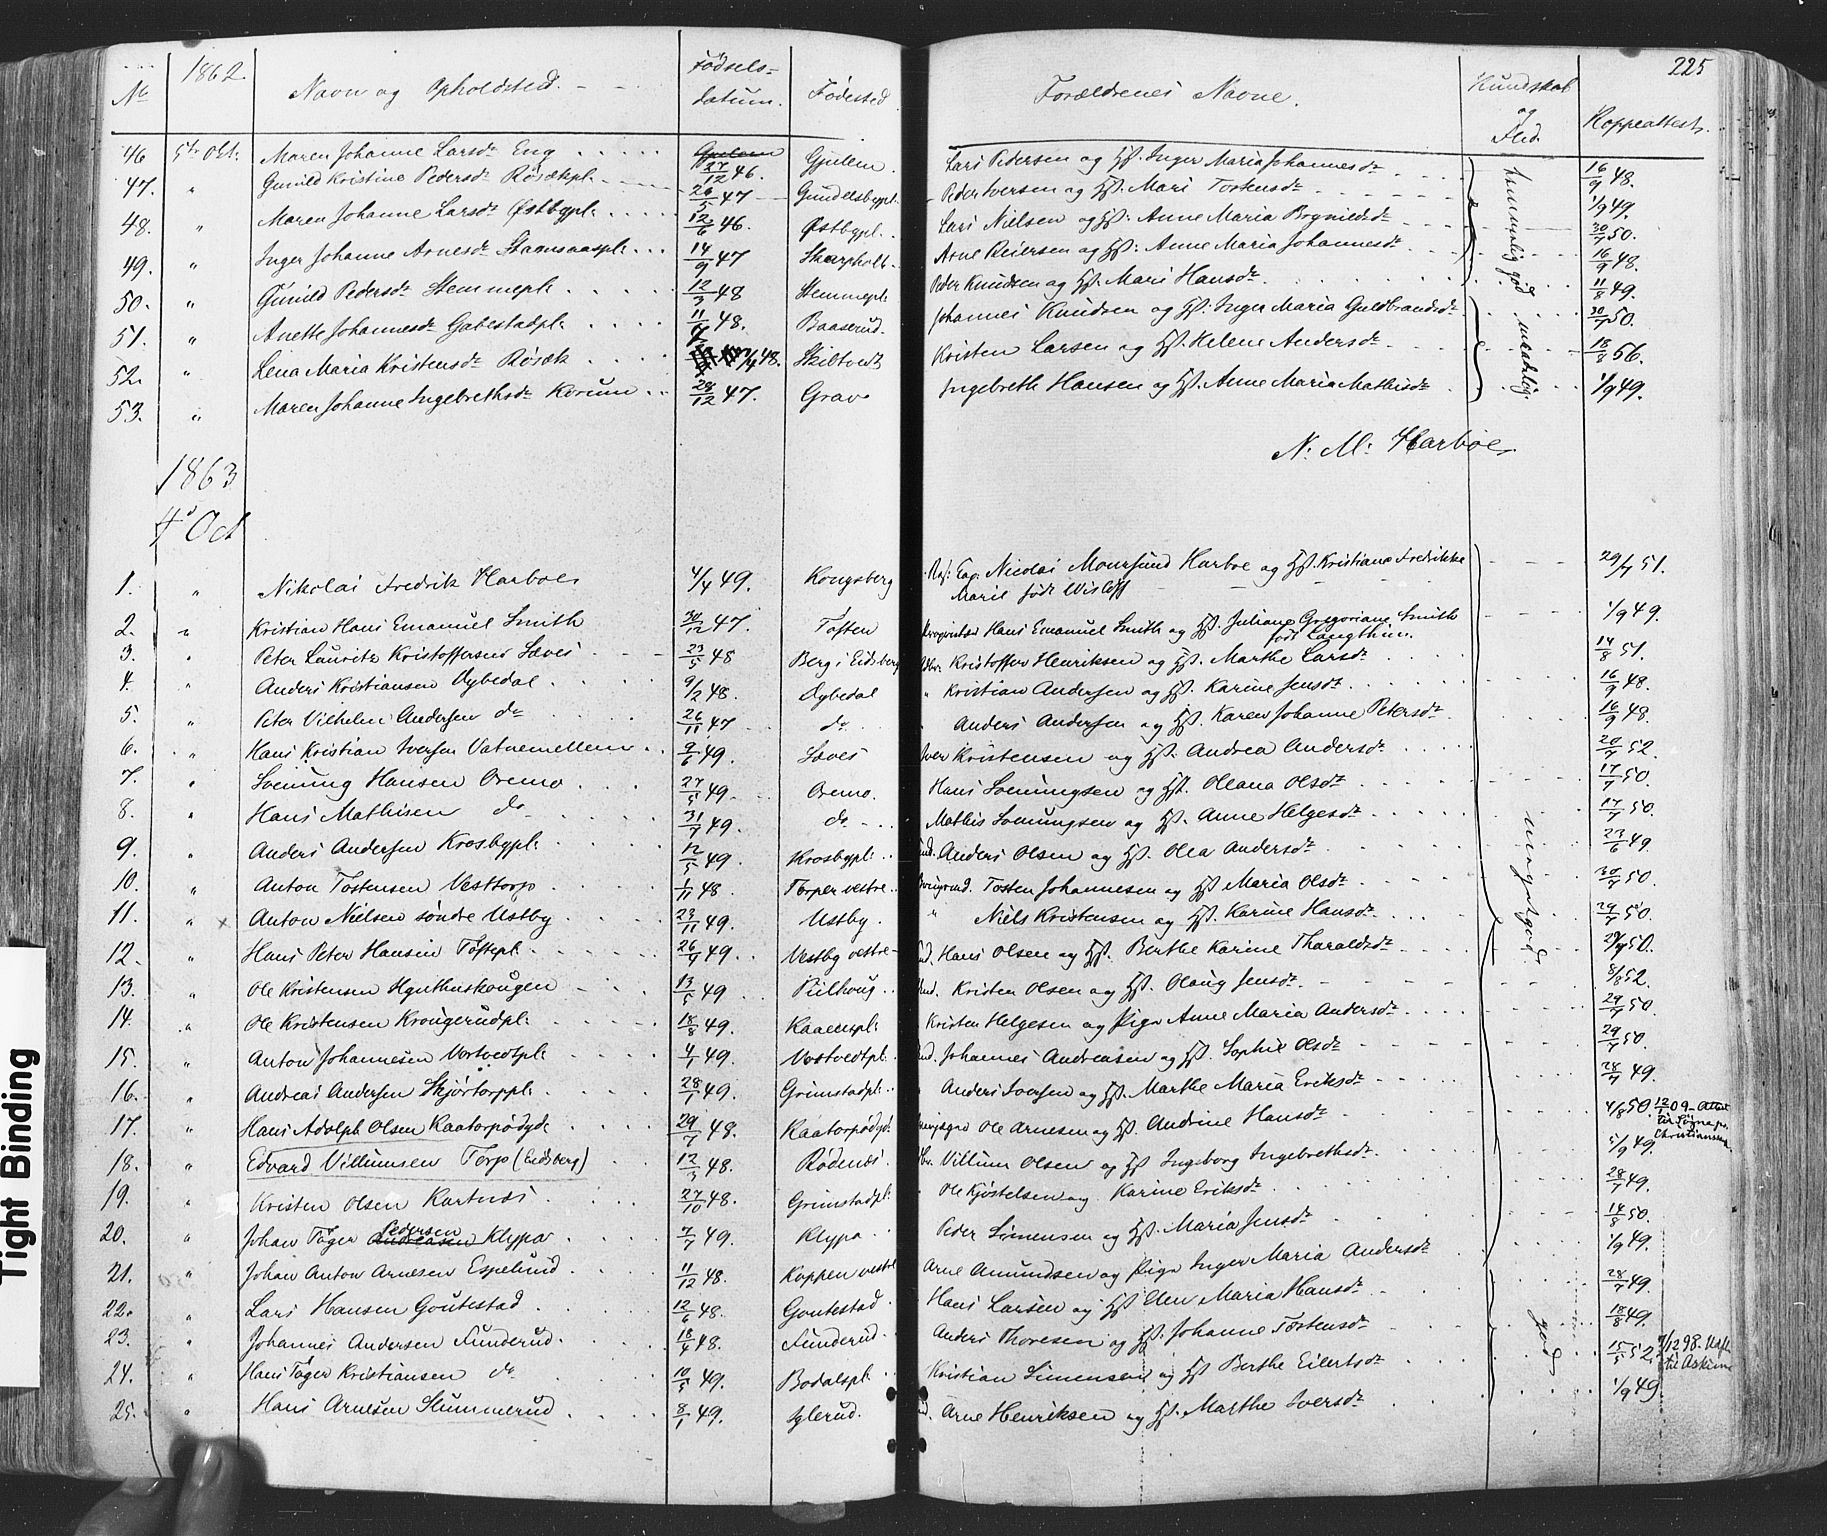 225
1862.
No Navn og Opholdsted. Fødsels-datum. Fødested Forældrenes Navne. Kundskab og Flid. Koppeattest.
46 5te Okt. Maren Johanne Larsdr Eng 27/12 46. Gjulem Lars Pedersen og Hst. Inger Maria Johannesdr 16/9 48.
47. " Gunild Kristine Pedersdr Røsækpl. 26/5 47 Gundelsbypl. Peder Iversen og Hst. Mari Tostensdr 1/9 49.
48. " Maren Johanne Larsdr Østbypl. 12/6 46. Østbypl. Lars Nielsen og Hst. Anne Maria Brynildsdr 30/7 50.
49. " Inger Johanne Arnesdr 14/9 47 Skarpholt Arne Reiersen og Hst: Anne Maria Johannesdr 16/9 48.
50. " Gunild Pedersdr Stemmepl. 12/3 48 Stemmepl. Peder Knudsen og Hst. Mari Hansdr 11/8 49.
51. " Anette Johannesdr Gabestadpl. 48. Baaserud. Johannes Knudsen og Hst. Inger Maria Guldbrandsdr 30/7 50.
52. " Lena Maria Kristensdr Røsæk 48. Skibtvedt Kristen Larsen og Hst. Helene Andersdr 18/8 56.
53. " Maren Johanne Ingebrethsdr Korum 28/12 47. Grav Ingebreth Hansen og Hst. Anne Maria Mathisdr 1/9 49.
temmelig god
maadelig.
N. M. Harboe
1863
4de Oct
1. " Nikolai Fredrik Harboe 4/4 49. Kongsberg Res: Cap: Nicolai Moursund Harboe og Hst. Kristiane Fredrikke 29/7 51.
Marie født Wisløff
2. " Kristian Hans Emanuel Smith 30/12 47. Toften Hans Emanuel Smith og Hst. Juliane Gregoriane Smith 1/9 49.
født Langthim.
3. " Peter Lauritz Kristoffersen Sæves 23/5 48 Berg i Eidsberg Kristoffer Henriksen og Hst. Marthe Larsdr 14/8 51.
4. " Anders Kristiansen Dybedal 9/2 48. Dybedal " Kristian Andersen og Hst. Karine Jensdr 16/9 48.
5. " Peter Vilhelm Andersen do 26/11 47 do Anders Andersen og Hst. Karen Johanne Petersdr 16/9 48.
6. " Hans Kristian Iversen Vatnemellem 9/6 49. Sæves Iver Kristensen og Hst. Andrea Andersdr 20/7 52.
7. " Soenung Hansen Oremo 27/5 49. Oremo. Hans Soenungsen og Hst. Oleana Olsdr 17/7 50.
8. " Hans Mathisen do 31/7 49. do Mathis Soenungsen og Hst. Anne Helgesdr 17/7 50.
9. " Anders Andersen Krosbypl. 12/5 49. Krosbypl. Anders Olsen og Hst. Olea Andersdr 23/6 49.
10. " Anton Tostensen Vesttorp 1/11 48. Torper vestre Tosten Johannesen og Hst. Maria Olsdr 30/7 50.
11. " x Anton Nielsen søndre Ustby 23/11 49. Ustby. " Niels Kristensen og Hst. Karine Hansdr 29/7 50.
12. " Hans Peter Hansen Toftepl. 26/4 49. Vestby vestre Hans Olsen og Hst. Berthe Karine Tharaldsdr 29/7 50.
13. " Ole Kristensen 13/5 49 Piilhoug Kristen Olsen og Hst. Olaug Jensdr 8/8 52.
14. " Ole Kristensen Krougerudpl. 18/8 49. Kristen Helgesen og Pige Anne Maria Andersdr 29/7 50.
15. " Anton Johannesen Vestvedtpl. 4/1 49. Vestvedtpl. Johannes Andreasen og Hst. Sophie Olsdr 29/7 50.
16. " Andreas Andersen Skjørtorppl. 28/1 49. Grimstadpl. Anders Iversen og Hst. Marthe Maria Eriksdr 28/7 49.
17. " Hans Adolph Olsen Kaatorpødyd. 29/7 48. Kaatorpødyd. Ole Arnesen og Hst. Andrine Hansdr 4/8 50. 12/1 09 - Attest til Søgne pr. Christianssand
18. " Edvard Villumsen Torp (Eidsberg) 12/3 48. Rødenæs. Villum Olsen og Hst. Ingeborg Ingebrethsdr 5/9 49.
19. " Kristen Olsen Kartnæs 27/10 48. Grimstadpl. Ole Kjøstelsen og Karine Eriksdr 28/7 49.
20. " Johan Tøger Andreasen Pedersen Klypa 7/7 49. Klypa Peder Simensen og Hst. Maria Jensdr 14/8 50.
21. " Johan Anton Arnesen Espelund 11/12 48. Koppen vestre Arne Amundsen og Pige Inger Maria Andersdr 1/9 49.
22. " Lars Hansen Goutestad 12/6 48. Goutestad Hans Larsen og Hst Elen Maria Hansdr 28/7 49.
23. " Johannes Andersen Funderud. 18/4 48. Funderud. Anders Thoresen og Hst. Johanne Tostensdr 18/8 49.
24. " Hans Tøger Kristiansen do 10/5 49. Bodalspl. Kristian Simensen og Hst Berthe Eilertsdr 15/5 52. 7/12 98. til Askim
25. " Hans Arnesen Slummerud 8/1 49. Iglerud. Arne Henriksen og Hst. Marthe Iversdr 1/9 49.
meget god
god
Tight Binding